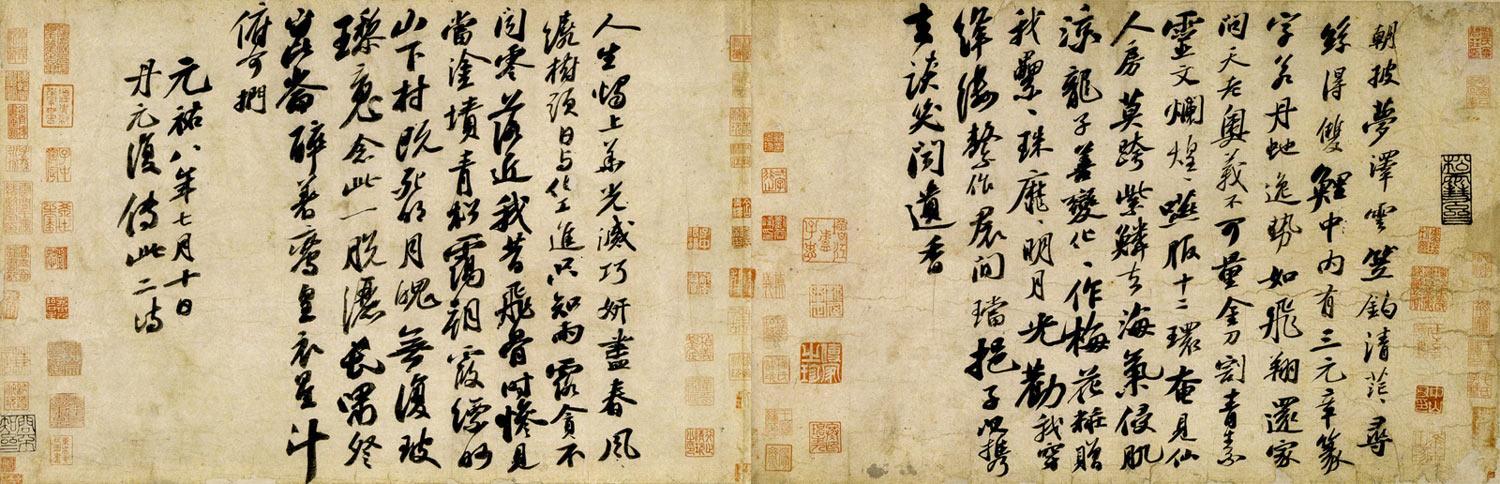 朝披夢澤雲笠釣清茫、尋
絲得雙鯉中內有三元章篆
字若丹虵逸勢如飛翔還家
問天老奧義不可量金刀割青素
靈文爛煌、嚥服十二環奄見仙
人房莫跨紫鱗去海氣侵肌
涼龍子善變化、作梅花粧贈
我纍、珠靡、明月光勸我穿
絳縷繫作裙間璫挹子以携
去談笑聞遺香
人生燭上華光滅巧妍盡春風
繞樹頭日与化工進只知雨露貪不
聞零落近我昔飛骨時慘見
當塗墳青松靄朝霞縹緲
山下村既死明月魄無復玻
瓈魂念此一脫灑長嘯祭
崑崙醉著鸞皇衣星斗
俯可捫
元祐八年七月十日
丹元復傳此二詩